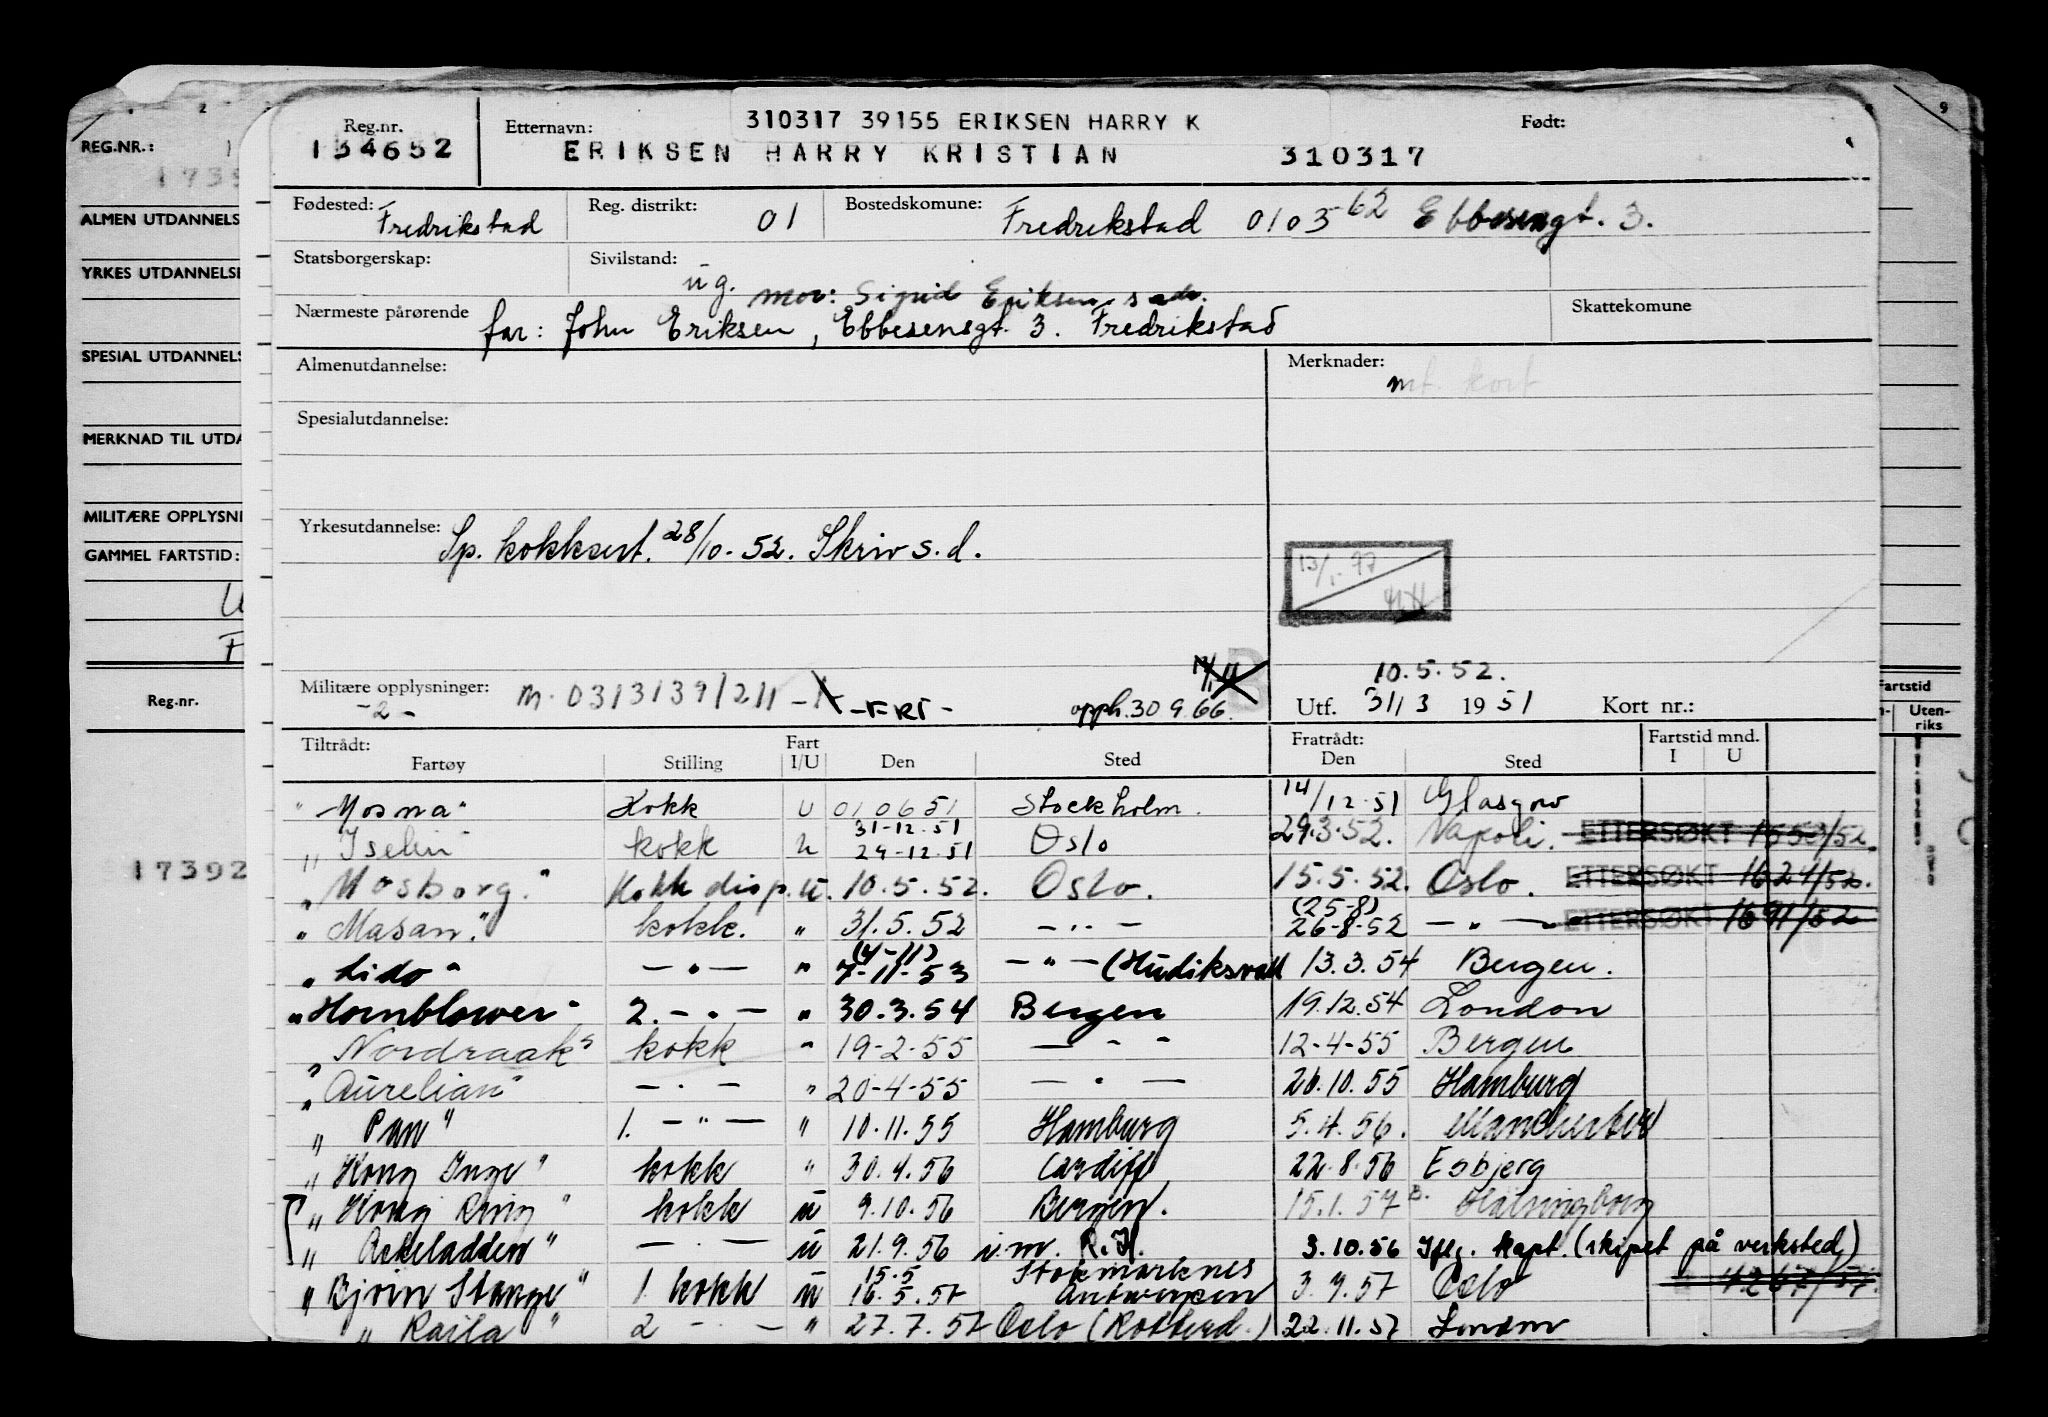 310317 39155 ERIKSEN HARRY K
Reg.nr. Etternavn: Født:
134652 ERIKSEN HARRY KRISTIAN 310317
Fødested: Fredrikstad Reg. distrikt: 01 Bostedskomune: Fredrikstad 0103 62 Ebbesensgt. 3.
Statsborgerskap: Sivilstand: ug.
mor: Sigrid Eriksen s adr.
Nærmeste pårørende far: John Eriksen, Ebbesensgt. 3. Fredrikstad Skattekomune
Almenutdannelse: Merknader:
mt. kort
Spesialutdannelse:
Yrkesutdannelse: Sp. kokksert. 28/10-52. Skriv s.d.
13/1-77
10.5.52.
Militære opplysninger: m. 0313139/211 -FRI-
-2- opph. 30 9.66. Utf. 31/3 1951 Kort nr.:
Tiltrådt: Fart Fratrådt: Fartstid mnd.
Fartøy Stilling I/U Den Sted Den Sted I U
"Mosna" Kokk U 010651 Stockholm. 14/12.51 Glasgow
31-12.51
"Iselin" kokk u 29-12.51 Oslo 29.3.52. Napoli. ETTERSØKT 1553/52.
"Mosborg." Kokk disp. u. 10.5.52. Oslo. 15.5.52. Oslo. ETTERSØKT 1624/52.
(25-8)
"Masan." kokk. " 31.5.52 -"- 26-8-52 -"- ETTERSØKT 1691/52
(4-11)
"Lido" -"- " 7-11-53 -"- (Hudiksvall 13.3.54 Bergen.
"Hornblower" 2. -"- " 30.3.54 Bergen 19.12.54 London
"Nordraak" kokk " 19-2-55 -"- 12-4-55 Bergen
"Aurelian" -"- " 20-4-55 -"- 26.10.55 Hamburg
"Pan" 1. -"- " 10.11.55 Hamburg 5.4.56. Manchester
"Kong Inge" kokk " 30.4.56 Cardiff 22.8.56 Esbjerg
"Kong Ring" kokk u 9.10.56 Bergen. 15.1.57 Hälsingborg
"Askeladden" -"- u 21.9.56 i.m. R.H. 3.10.56 Iflg. kapt. (skipet på verksted)
15.5 Stokmarknes
"Bjørn Stange" 1. kokk u 16.5.57 Antwerpen 3.7.57 Oslo 4267/57.
"Raila" 2 -"- " 27.7.57 Oslo (Rotterd.) 22.11.57 London
REG.NR.: 1
1739
ALMEN UTDANNELS
YRKES UTDANNELSE
SPESIAL UTDANNELS
MERKNAD TIL UTDA
MILITÆRE OPPLYSNI
GAMMEL FARTSTID:
Reg.nr.
17392
2
9
Fartstid
Uten-
riks